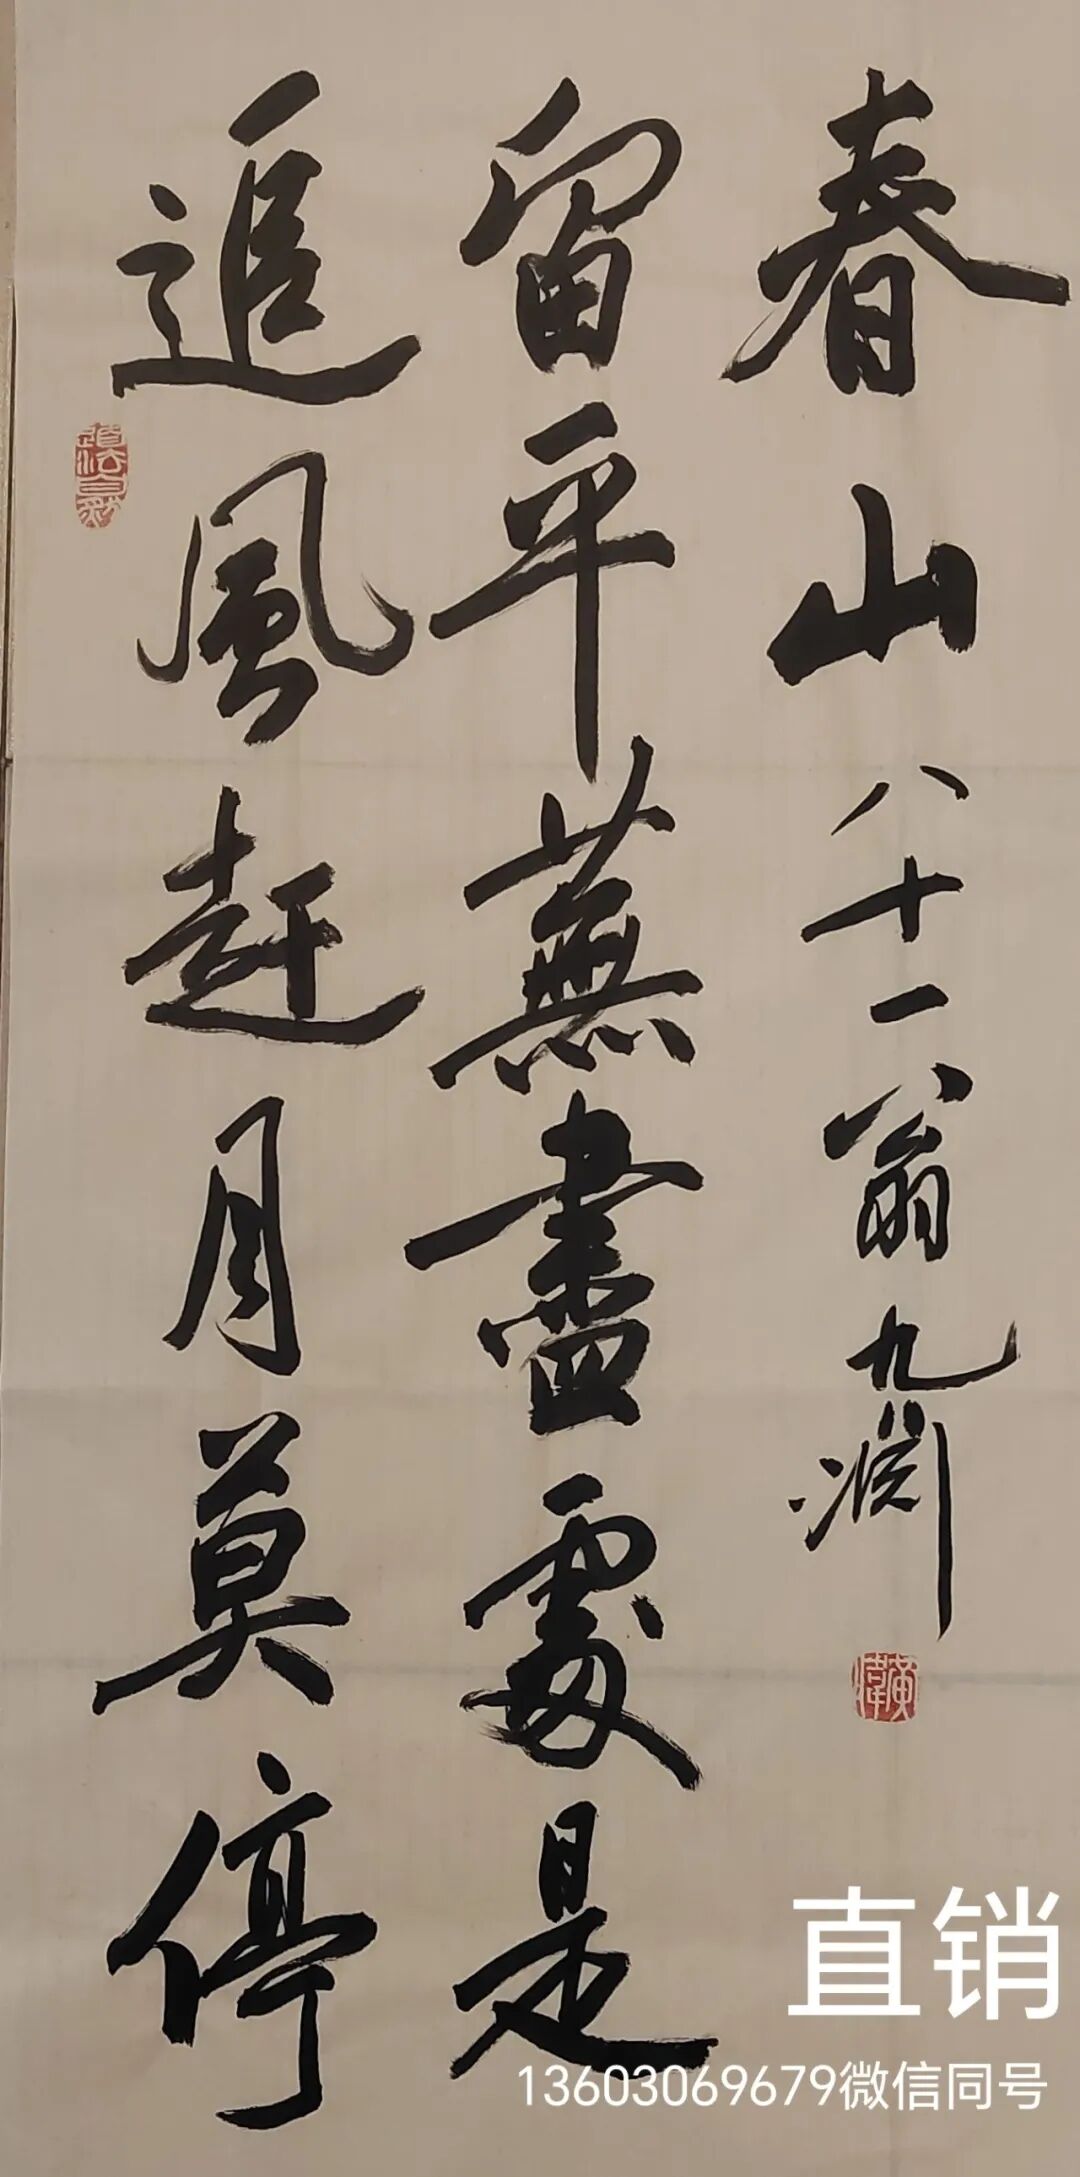 追風赶月莫停
道法自然
留平蕪盡處是
春山八十一翁九淵
直销
13603069679微信同号